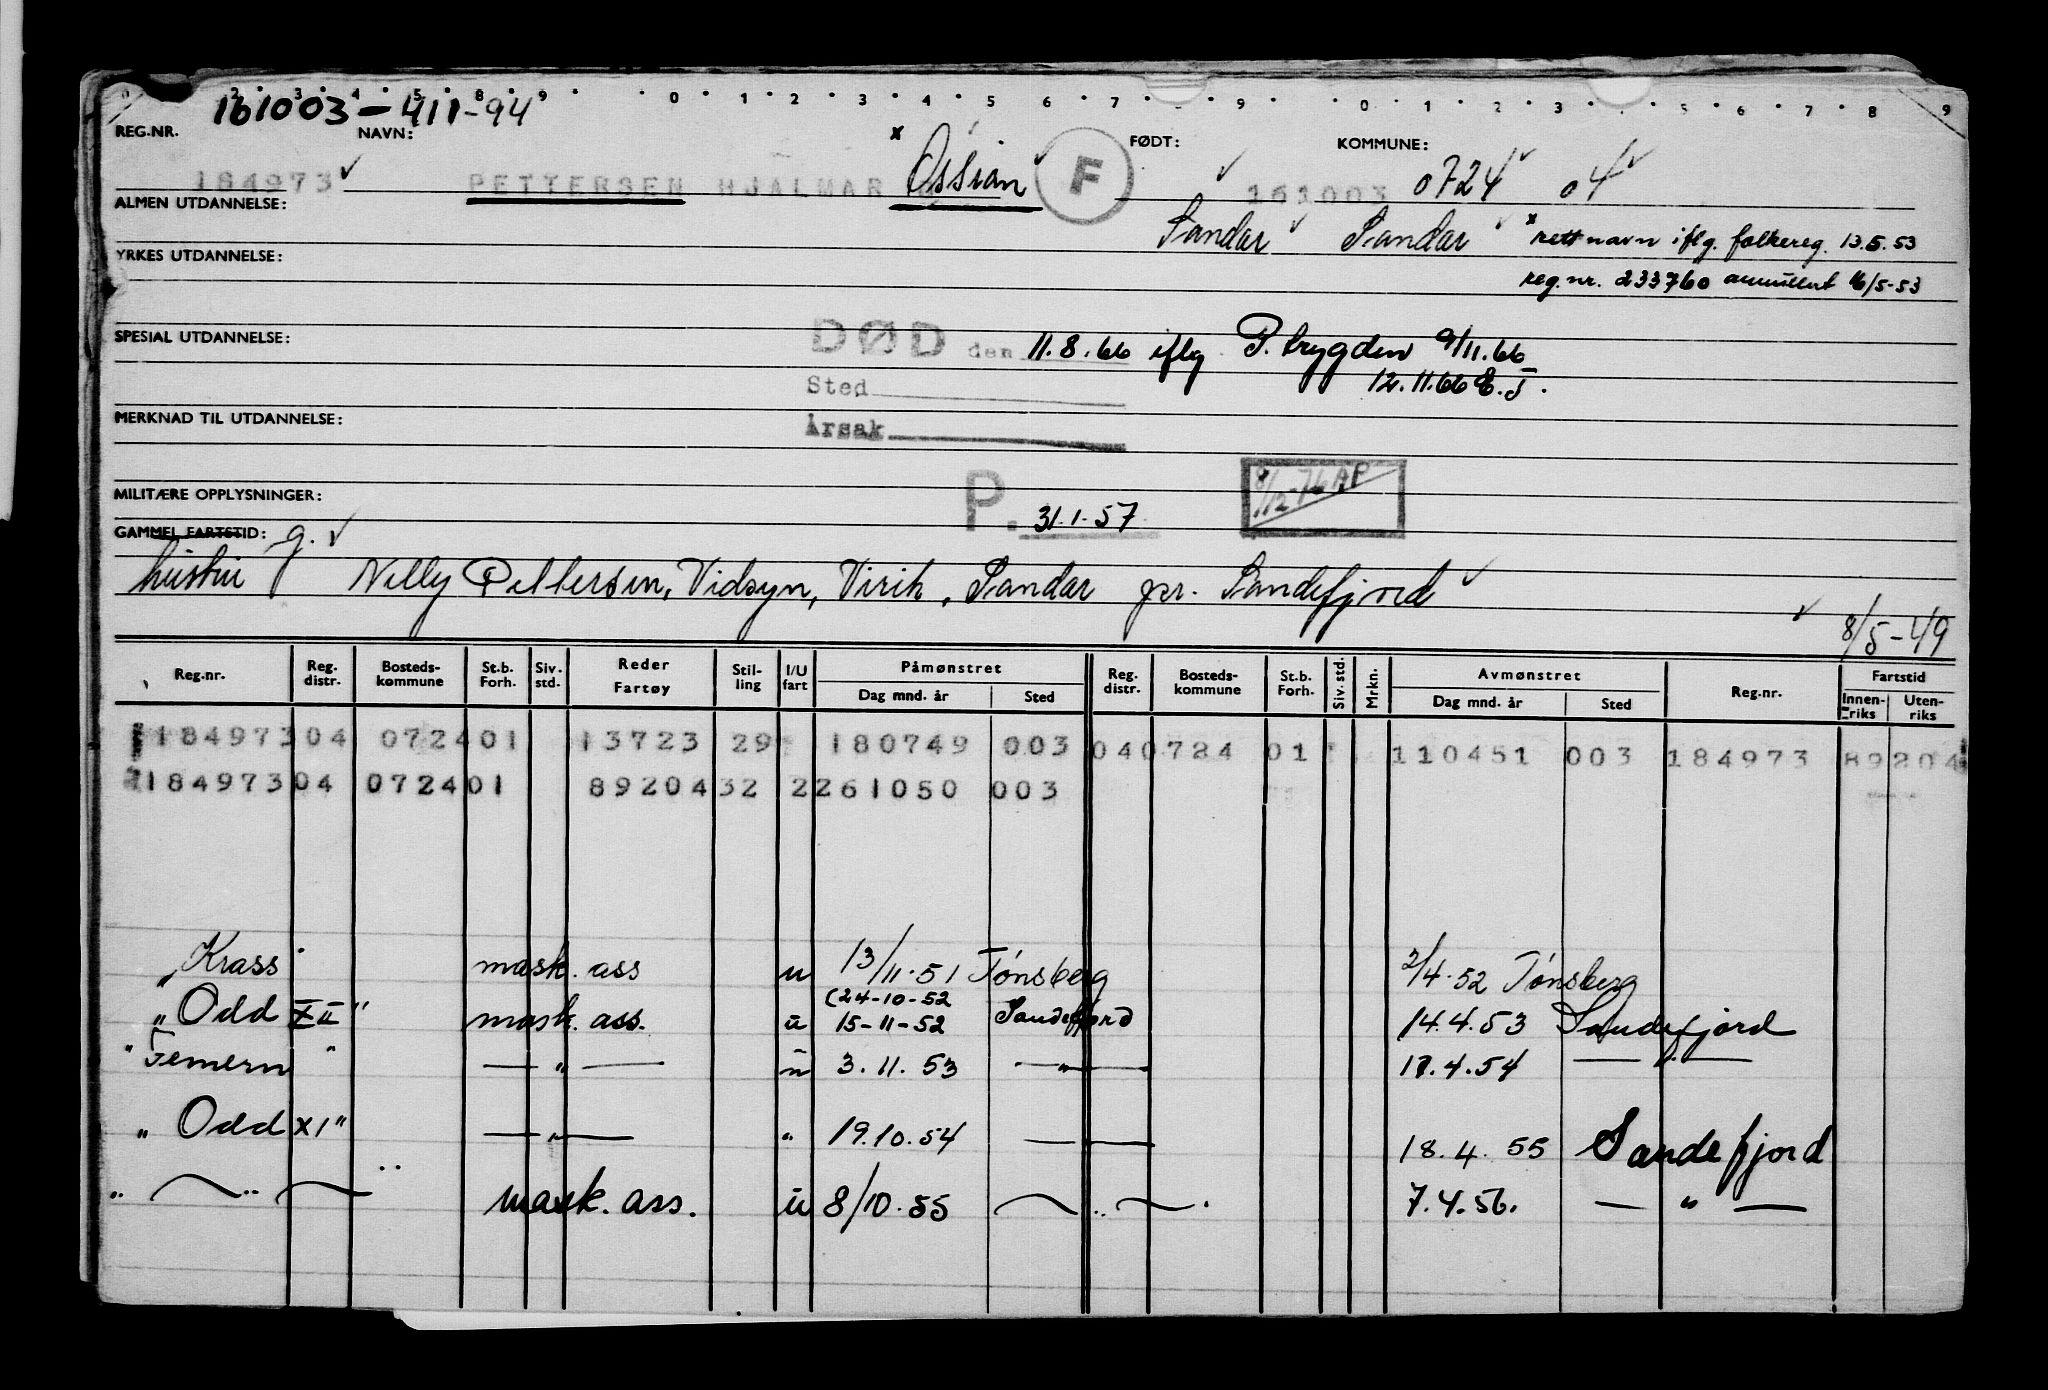 161003-411-94
REG.NR. NAVN: FØDT: KOMMUNE:
184973 PETTERSEN HJALMAR x Ossian F 161003 0724 04
ALMEN UTDANNELSE:
Sandar Sandar x rett navn iflg. folkereg. 13.5.53
YRKES UTDANNELSE:
reg.nr. 233760 annullert 16/5-53
SPESIAL UTDANNELSE: DØD den 11.8.66 iflg P. trygden 9/11.66
Sted 12.11.66 E.J.
MERKNAD TIL UTDANNELSE: Årsak
MILITÆRE OPPLYSNINGER: P. 31.1.57 8/12-76 AP
GAMMEL FARTSTID: g.
hustru Nelly Pettersen, Vidsyn, Virik, Sandar pr. Sandefjord
8/5-49
Reg.nr. Reg. distr. Bosteds-kommune St.b. Forh. Siv. std. Reder Fartøy Stil-ling I/U fart Påmønstret Reg. distr. Bosteds-kommune St.b. Forh. Siv. std. Mrkn. Avmønstret Reg.nr. Fartstid
Dag mnd. år Sted Dag mnd. år Sted Innen-riks Uten-riks
184973 04 0724 01 13723 29 180749 003 04 0724 01 110451 003 184973 89204
184973 04 0724 01 89204 32 2 261050 003
"Krass" mask. ass u 13/11.51 Tønsberg 2/4.52 Tønsberg
(24-10-52
"Odd XII" mask. ass. u 15-11-52 Sandefjord 14.4.53 Sandefjord
"Femern" — " — u 3.11.53 — " — 17.4.54 — " —
"Odd XI" — " — " 19.10.54 — " — 18.4.55 Sandefjord
" — " — mask. ass. u 8/10.55 — " — 7.4.56. — " —